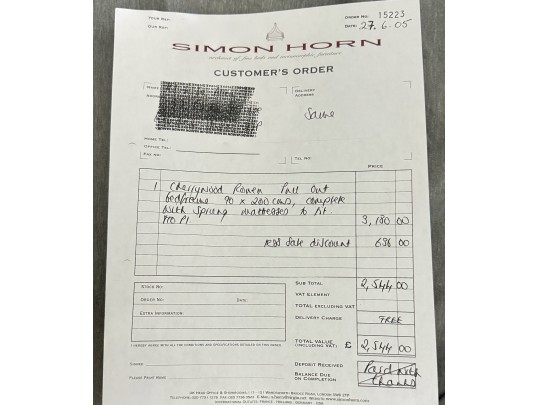 YOUR REF:
OUR REF:
ORDER NO: 15223
DATE: 27.6.05
SIMON HORN
CUSTOMER'S ORDER
NAME
DELIVERY ADDRESS
Same
HOME TEL:
OFFICE TEL:
FAX NO:
TEL NO:
PRICE
1 Cherrywood Pull Out
90 x 200 cms, complete
with sprung mattresses to fit
3,180 00
less sale discount 636 00
SUB TOTAL 2,544 00
VAT ELEMENT
TOTAL EXCLUDING VAT
DELIVERY CHARGE FREE
TOTAL VALUE (INCLUDING VAT) £ 2,544 00
STOCK NO:
ORDER NO: DATE:
EXTRA INFORMATION:
I HEREBY AGREE WITH ALL THE CONDITIONS AND SPECIFICATIONS DETAILED ON THIS ORDER
SIGNED
PLEASE PRINT NAME
DEPOSIT RECEIVED
BALANCE DUE ON COMPLETION
Paid with thanks